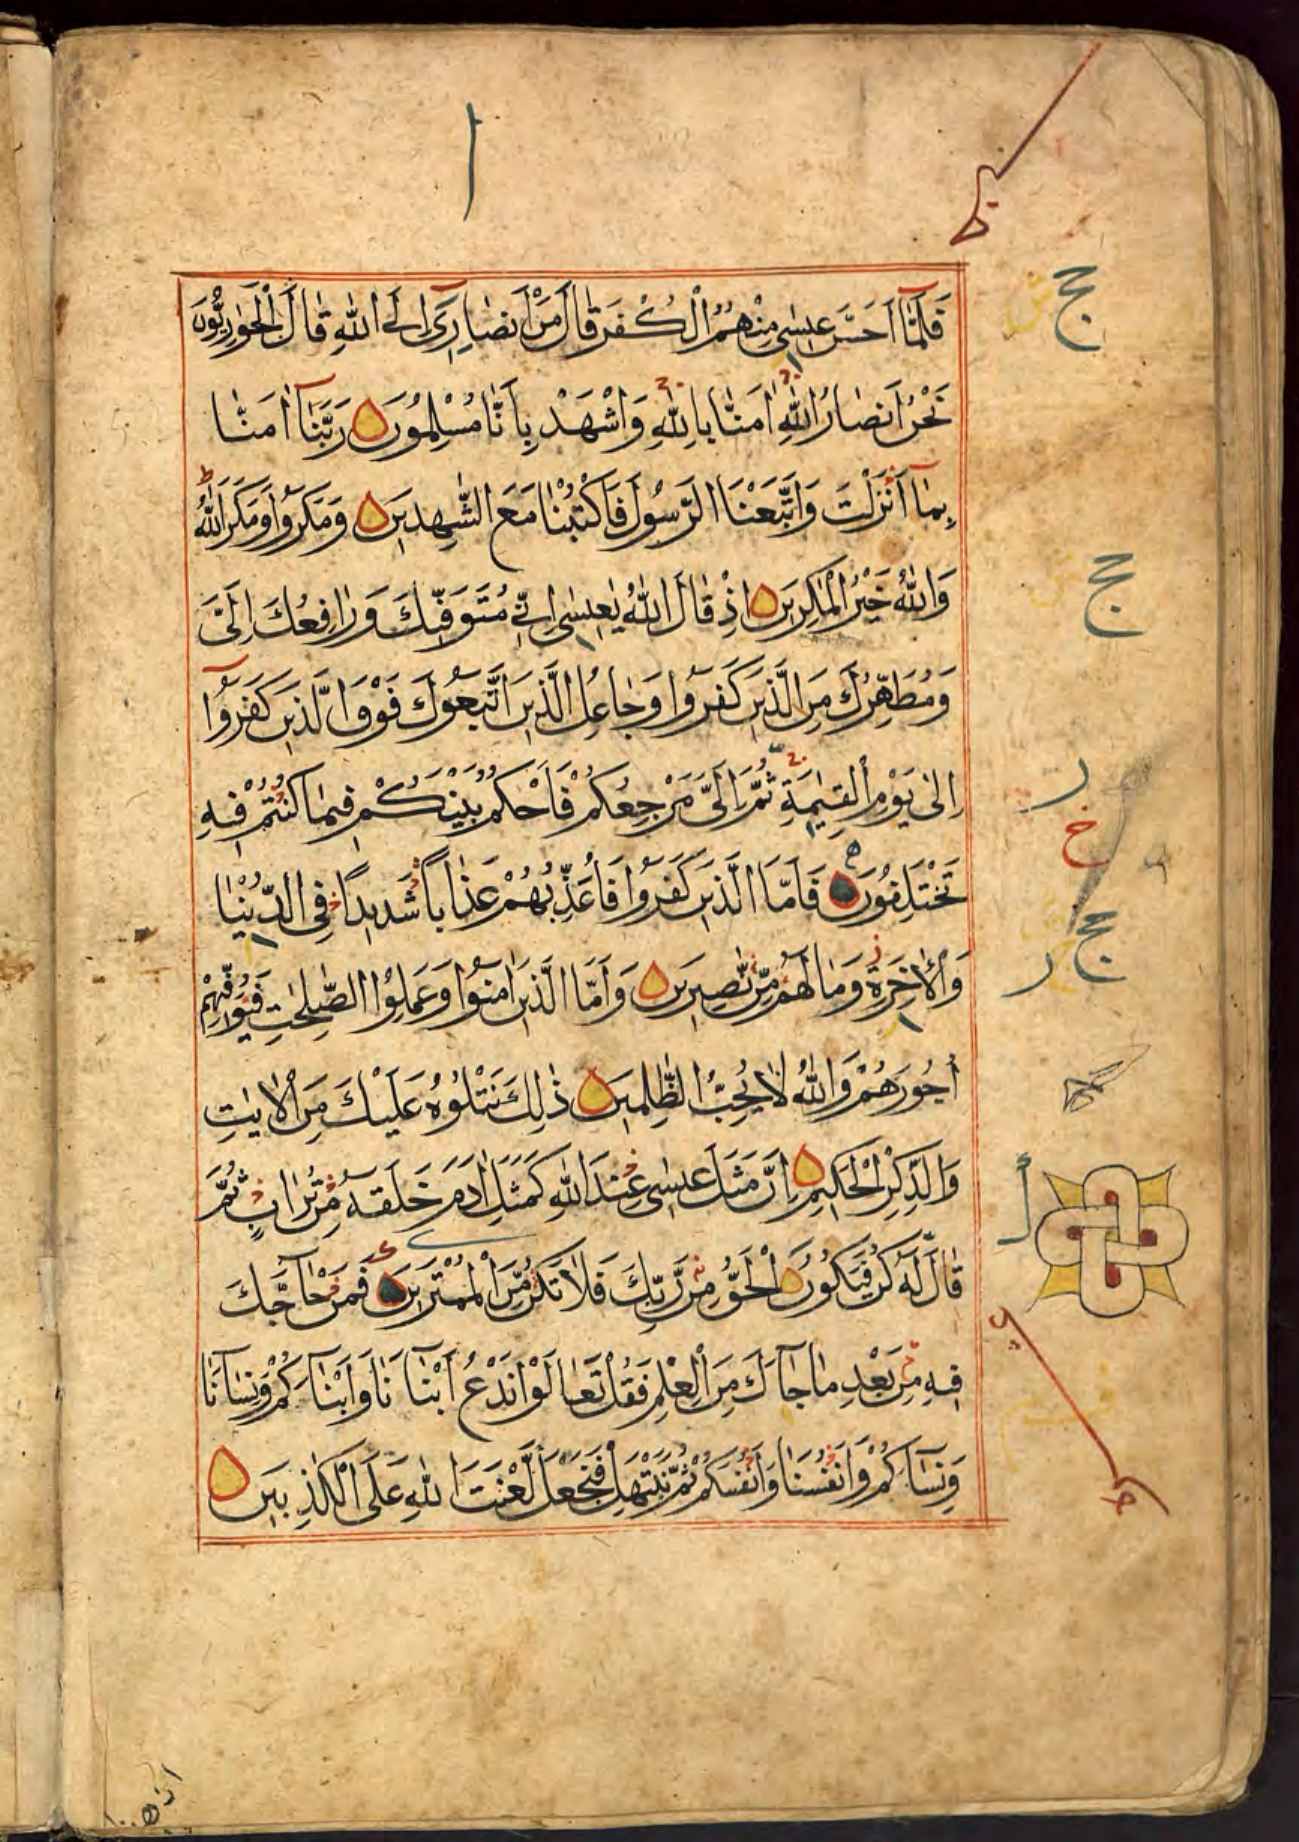 فَلَمَّآ اَحَسَّ عِيسٰى مِنْهُمُ الْكُفْرَ قَالَ مَنْ اَنْصَارِىٓ اِلَى اللّٰهِ قَالَ الْحَوَارِيُّونَ
نَحْنُ اَنْصَارُ اللّٰهِ اٰمَنَّا بِاللّٰهِ وَاشْهَدْ بِاَنَّا مُسْلِمُونَ رَبَّنَآ اٰمَنَّا
بِمَآ اَنْزَلْتَ وَاتَّبَعْنَا الرَّسُولَ فَاكْتُبْنَا مَعَ الشّٰهِدِينَ وَمَكَرُوا وَمَكَرَ اللّٰهُ
وَاللّٰهُ خَيْرُ الْمَاكِرِينَ اِذْ قَالَ اللّٰهُ يٰعِيسٰى اِنِّى مُتَوَفِّيكَ وَرَافِعُكَ اِلَىَّ
وَمُطَهِّرُكَ مِنَ الَّذِينَ كَفَرُوا وَجَاعِلُ الَّذِينَ اتَّبَعُوكَ فَوْقَ الَّذِينَ كَفَرُوٓا
اِلٰى يَوْمِ الْقِيٰمَةِ ثُمَّ اِلَىَّ مَرْجِعُكُمْ فَاَحْكُمُ بَيْنَكُمْ فِيمَا كُنْتُمْ فِيهِ
تَخْتَلِفُونَ فَاَمَّا الَّذِينَ كَفَرُوا فَاُعَذِّبُهُمْ عَذَابًا شَدِيدًا فِى الدُّنْيَا
وَالْاٰخِرَةِ وَمَا لَهُمْ مِنْ نٰصِرِينَ وَاَمَّا الَّذِينَ اٰمَنُوا وَعَمِلُوا الصّٰلِحٰتِ فَيُوَفِّيهِمْ
اُجُورَهُمْ وَاللّٰهُ لَا يُحِبُّ الظّٰلِمِينَ ذٰلِكَ نَتْلُوهُ عَلَيْكَ مِنَ الْاٰيٰتِ
وَالذِّكْرِ الْحَكِيمِ اِنَّ مَثَلَ عِيسٰى عِنْدَ اللّٰهِ كَمَثَلِ اٰدَمَ خَلَقَهُ مِنْ تُرَابٍ ثُمَّ
قَالَ لَهُ كُنْ فَيَكُونُ الْحَقُّ مِنْ رَبِّكَ فَلَا تَكُنْ مِنَ الْمُمْتَرِينَ فَمَنْ حَآجَّكَ
فِيهِ مِنْ بَعْدِ مَا جَآءَكَ مِنَ الْعِلْمِ فَقُلْ تَعَالَوْا نَدْعُ اَبْنَآءَنَا وَاَبْنَآءَكُمْ وَنِسَآءَنَا
وَنِسَآءَكُمْ وَاَنْفُسَنَا وَاَنْفُسَكُمْ ثُمَّ نَبْتَهِلْ فَنَجْعَلْ لَعْنَتَ اللّٰهِ عَلَى الْكٰذِبِينَ